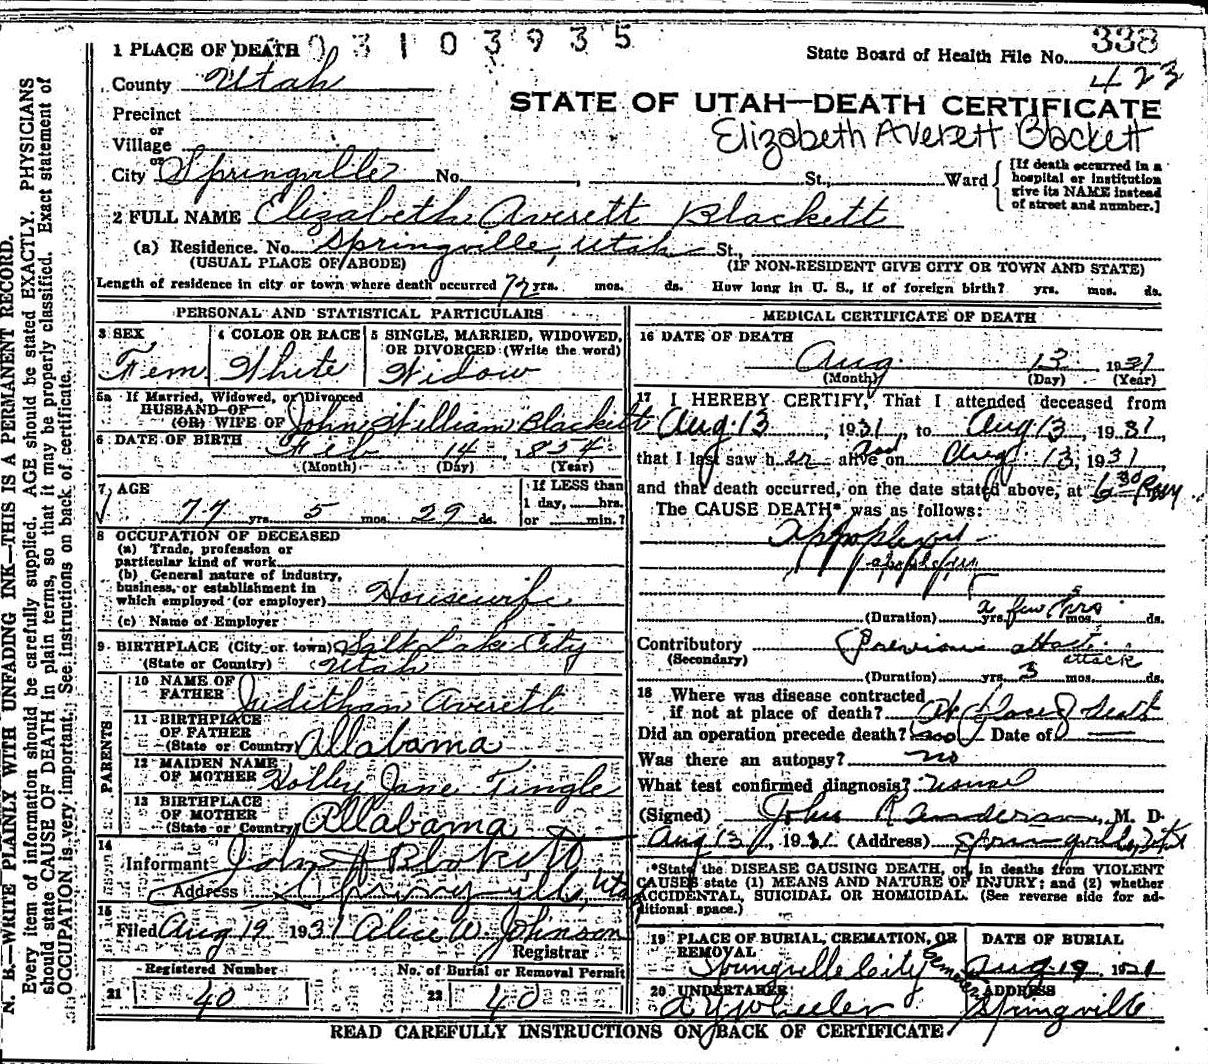 03103935
1 PLACE OF DEATH
State Board of Health File No. 338
423
County Utah
STATE OF UTAH—DEATH CERTIFICATE
Precinct
or
Elizabeth Averett Blackett
Village
or
City Springville No. , St., Ward
[If death occurred in a
hospital or institution
give its NAME instead
of street and number.]
2 FULL NAME Elizabeth Averett Blackett
(a) Residence. No. Springville, Utah St.,
(USUAL PLACE OF ABODE) (IF NON-RESIDENT GIVE CITY OR TOWN AND STATE)
Length of residence in city or town where death occurred 72 yrs. mos. ds. How long in U. S., if of foreign birth? yrs. mos. ds.
PERSONAL AND STATISTICAL PARTICULARS
3 SEX
Fem
4 COLOR OR RACE
White
5 SINGLE, MARRIED, WIDOWED,
OR DIVORCED (Write the word)
Widow
5a If Married, Widowed, or Divorced
HUSBAND OF
(OR) WIFE OF John William Blackett
6 DATE OF BIRTH Feb 14, 1854
(Month) (Day) (Year)
7 AGE
77 yrs. 5 mos. 29 ds.
If LESS than
1 day, hrs.
or min.?
8 OCCUPATION OF DECEASED
(a) Trade, profession or
particular kind of work
(b) General nature of industry,
business, or establishment in
which employed (or employer) Housewife
(c) Name of Employer
9 BIRTHPLACE (City or town) Salt Lake City
(State or Country) Utah
PARENTS
10 NAME OF
FATHER Judithan Averett
11 BIRTHPLACE
OF FATHER
(State or Country) Allabama
12 MAIDEN NAME
OF MOTHER Holley Jane Tingle
13 BIRTHPLACE
OF MOTHER
(State or Country) Allabama
14
Informant John Blackett
Address Springville, Utah
15
Filed Aug 19 1931 Alice W. Johnson
Registrar
Registered Number
21 40
No. of Burial or Removal Permit
22 40
MEDICAL CERTIFICATE OF DEATH
16 DATE OF DEATH
Aug 13 1931
(Month) (Day) (Year)
17 I HEREBY CERTIFY, That I attended deceased from
Aug. 13, 1931, to Aug 13, 1931,
that I last saw her alive on Aug. 13, 1931,
and that death occurred, on the date stated above, at 6 30 Pm.
The CAUSE DEATH* was as follows:
apoplexy
(Duration) yrs. a few hrs mos. ds.
Contributory Previous attack
(Secondary) attack
(Duration) yrs. 3 mos. ds.
18 Where was disease contracted
if not at place of death? At place of death
Did an operation precede death? no Date of
Was there an autopsy? no
What test confirmed diagnosis? usual
(Signed) John R Anderson, M. D.
Aug 13, 1931 (Address) Springville, Utah
*State the DISEASE CAUSING DEATH, or, in deaths from VIOLENT
CAUSES state (1) MEANS AND NATURE OF INJURY; and (2) whether
ACCIDENTAL, SUICIDAL OR HOMICIDAL. (See reverse side for ad-
ditional space.)
19 PLACE OF BURIAL, CREMATION, OR
REMOVAL
Springville City Cemetery
DATE OF BURIAL
Aug 19, 1931
20 UNDERTAKER
A Y Wheeler
ADDRESS
Springville
READ CAREFULLY INSTRUCTIONS ON BACK OF CERTIFICATE
N. B.—WRITE PLAINLY WITH UNFADING INK—THIS IS A PERMANENT RECORD.
Every item of information should be carefully supplied. AGE should be stated EXACTLY. PHYSICIANS
should state CAUSE OF DEATH in plain terms, so that it may be properly classified. Exact statement of
OCCUPATION is very important. See instructions on back of certificate.